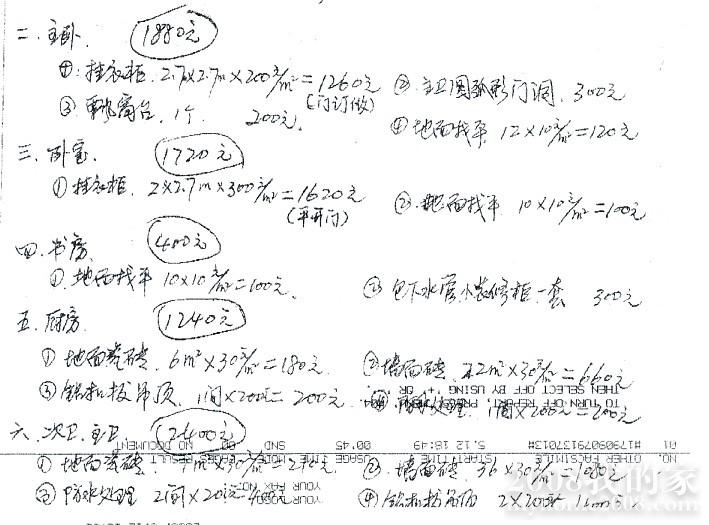 二.主卧. 1880元
①.挂衣柜. 2.7×2.7m×200元/m²=1260元 ②.主卫圆弧形门洞. 300元
(门订做)
③.飘窗台. 1个. 200元. ④地面找平. 12×10元/m²=120元
三.卧室. 1720元
①挂衣柜. 2×2.7m×300元/m²=1620元 ②.地面找平 10×10元/m²=100元
(平开门)
四.书房. 400元
①.地面找平 10×10元/m²=100元. ②包下水管小装修柜.一套 300元
五.厨房. 1240元
①地面瓷砖. 6m²×30元/m²=180元 ②墙面砖. 22m²×30元/m²=660元
③铝扣板吊顶. 1间×200元=200元. ④防水处理. 1间×200元=200元
TO TURN OFF REPORT, PRESS
THEN SELECT OFF BY USING '+' OR
六.次卫.主卫 2400元
01 #17909079137013# 5.12 16:49 00'45 SND 00 NO DOCUMENT
NO. OTHER FACSIMILE START TIME USAGE TIME MODE PAGES RESULT
①地面瓷砖. m×30元/m² ②.墙面砖. 36×30元/m²=1080元
③防水处理 2间×20元 ④铝扣板吊顶 2×200
YOUR FAX NO.
2008我的家